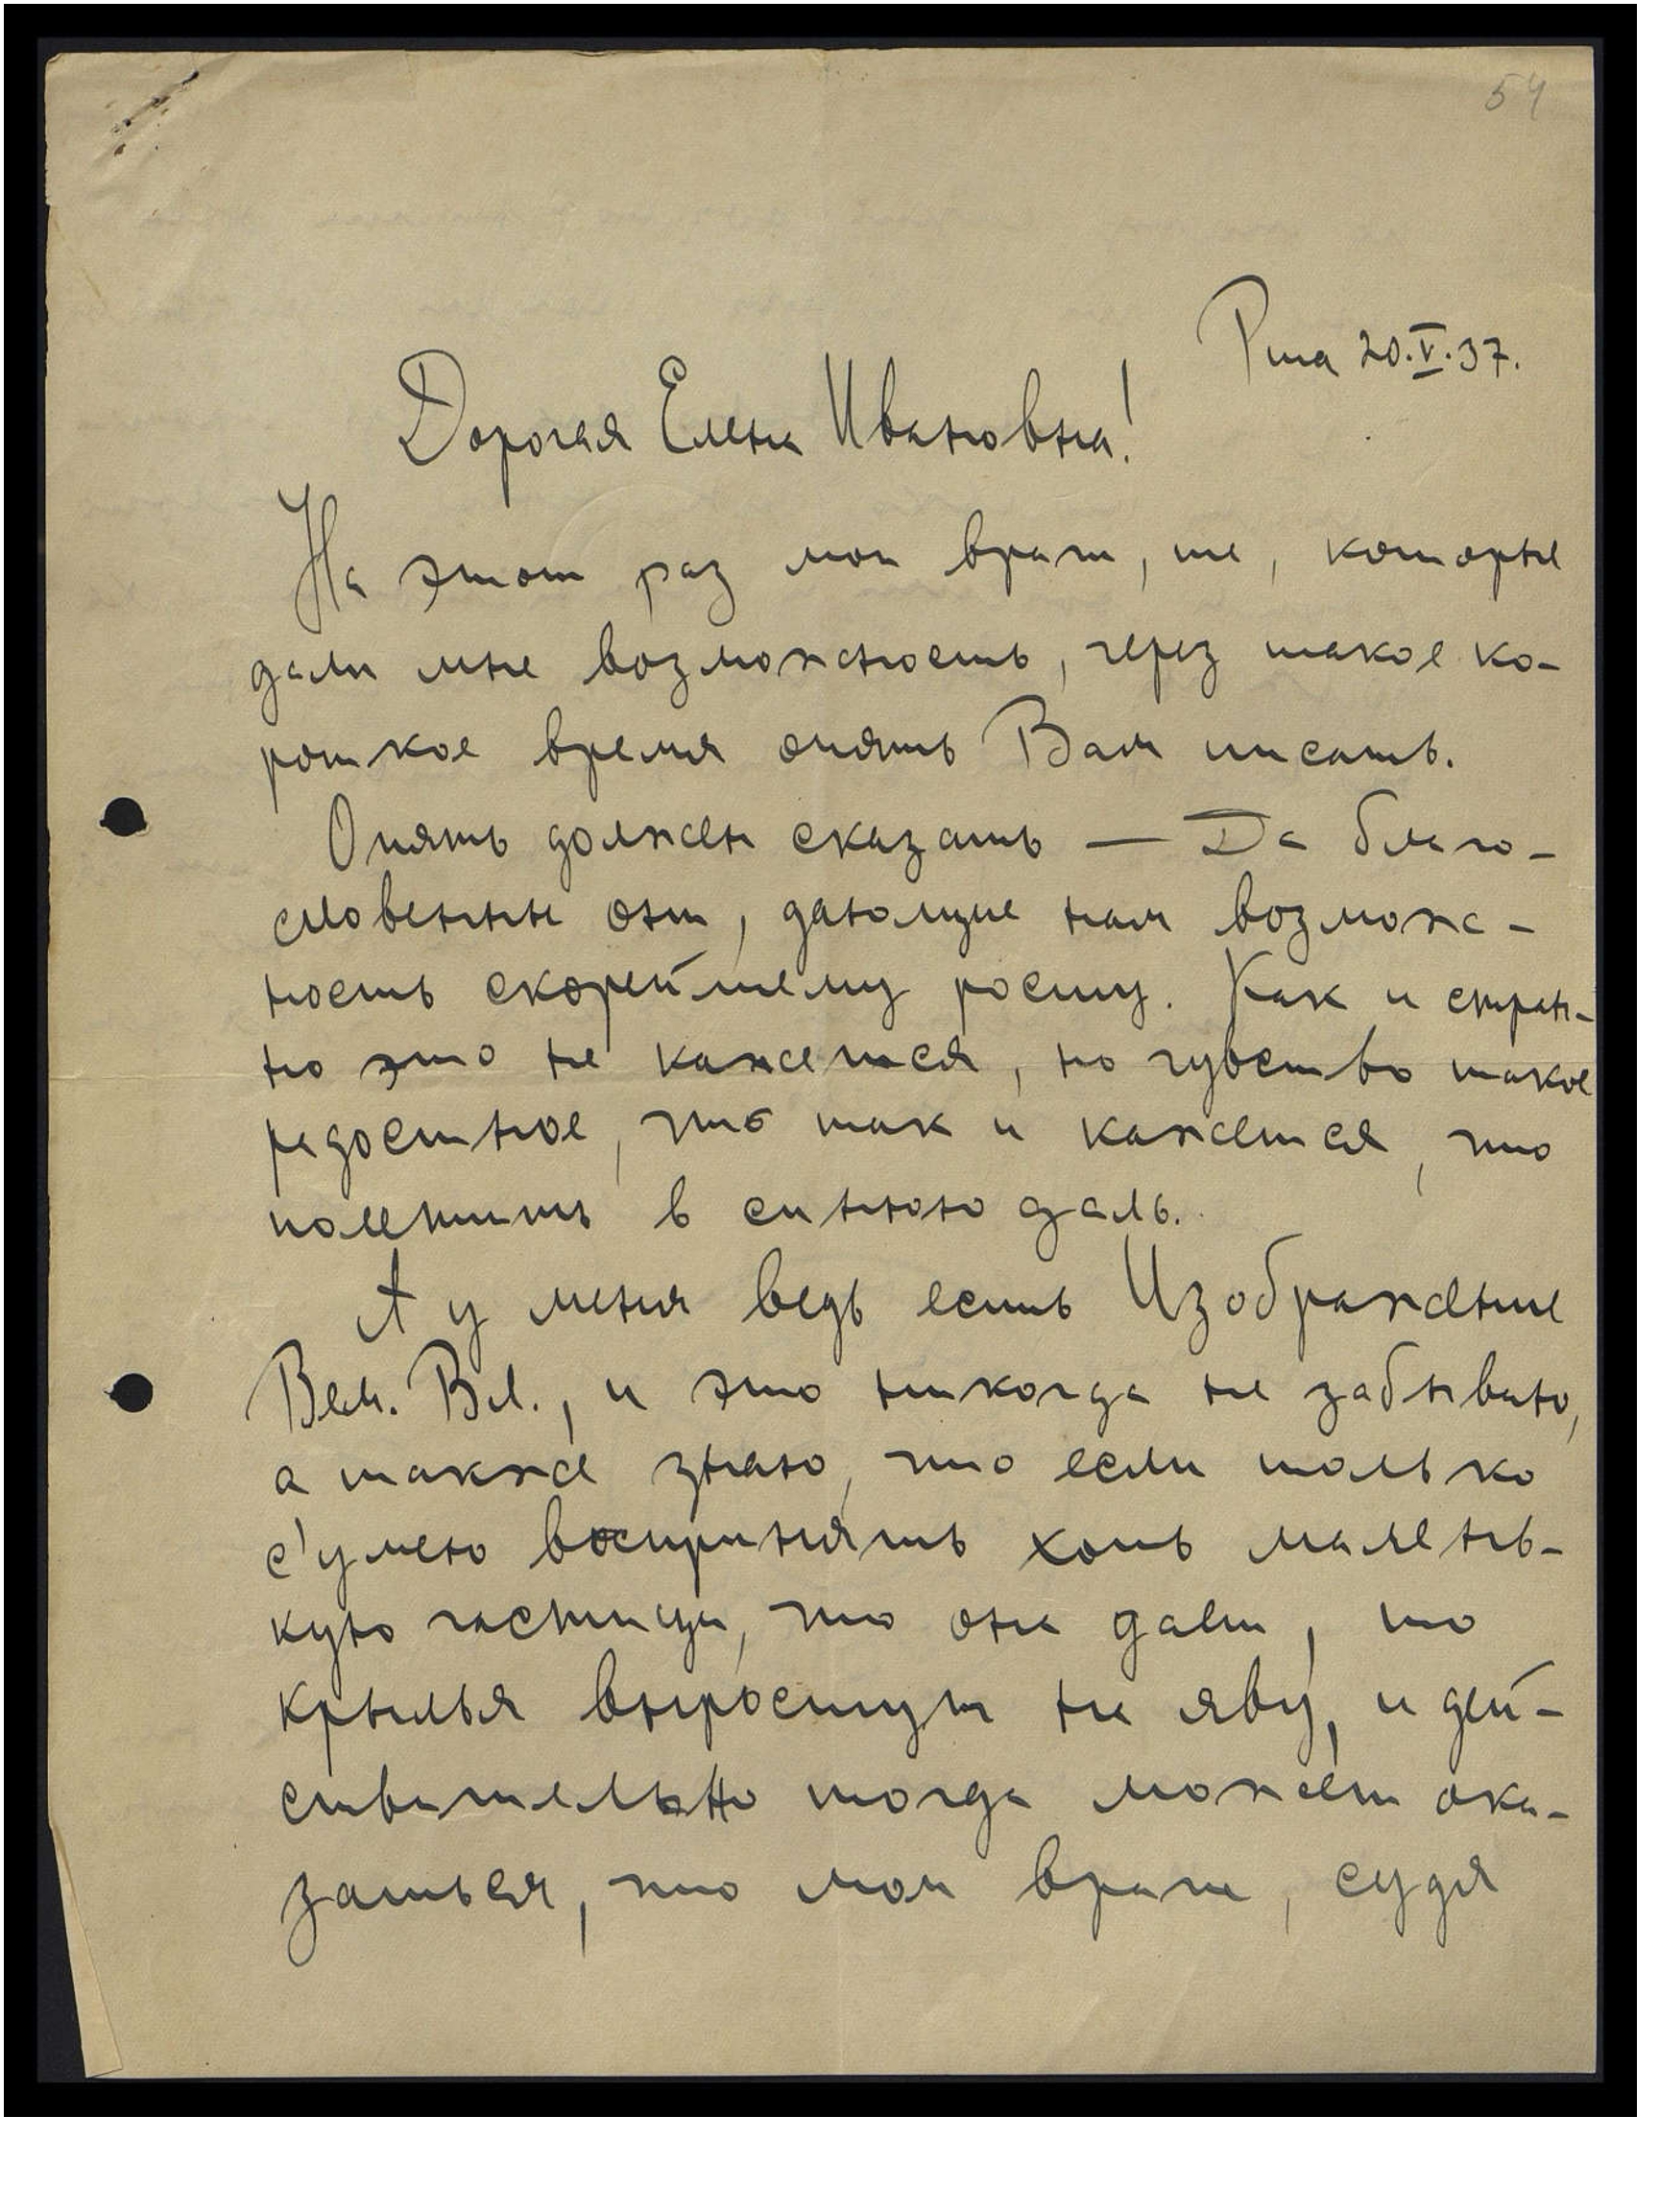 54
Рига 20.V.37.
Дорогая Елена Ивановна!
На этот раз мои враги, те, которые
дали мне возможность, через такое ко-
роткое время опять Вам писать.
Опять должен сказать — Да благо-
словенны они, дающие нам возмож-
ность скорейшему росту. Как и стран-
но это не кажется, но чувство такое
радостное, что так и кажется, что
полетишь в синюю даль.
А у меня ведь есть Изображение
Вел. Вл., и это никогда не забываю,
а также знаю, что если только
с'умею воспринять хоть малень-
кую частицу, что она дает, то
крылья вырастут на яву, и дей-
ствительно тогда может ока-
заться, что мои враги, судя